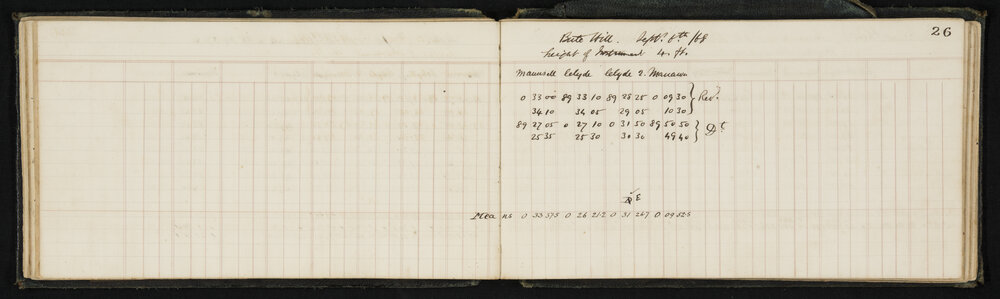 26
Bute Hill. Sept. 8th /68
height of Instrument 4. ft.
Maunsell Clyde Clyde 2.
0 33 00 89 33 10 89 28 25 0 09 30 } Rev.d
34 10 34 05 29 05 10 30
89 27 05 0 27 10 0 31 50 89 50 50 } Dt
25 35 25 30 30 30 49 40
E
Means 0 33 375 0 26 212 0 31 267 0 09 525